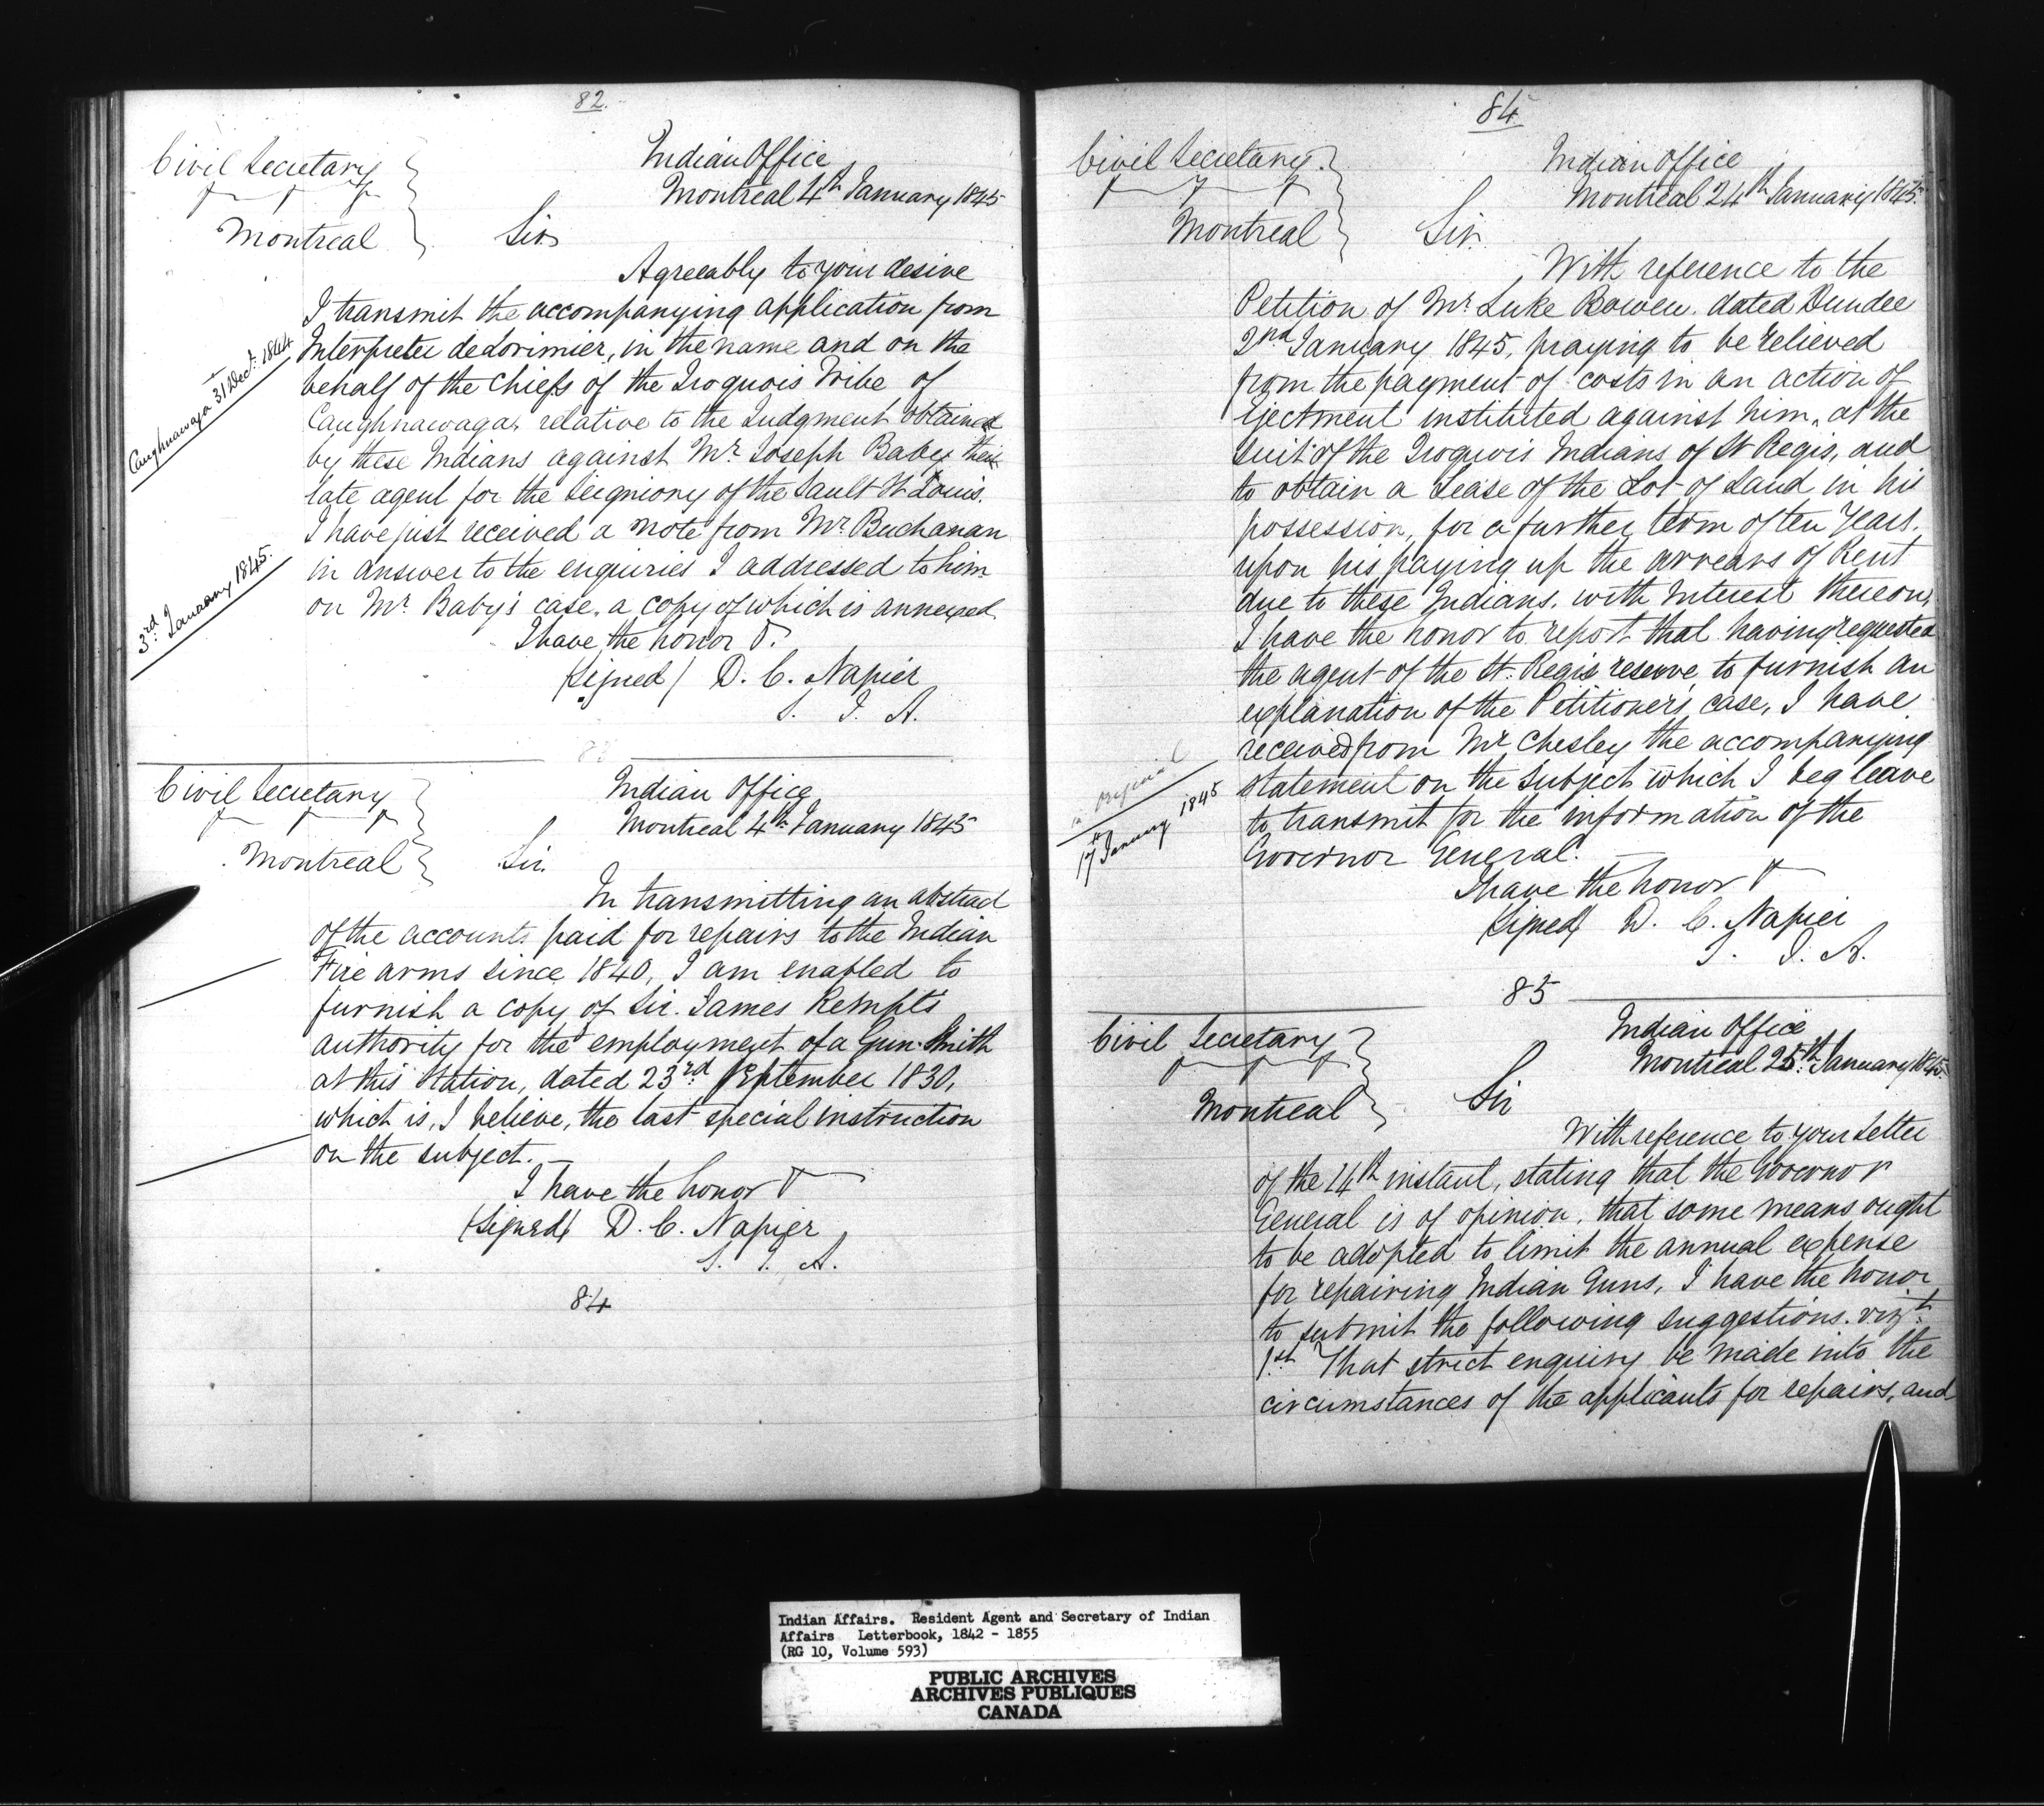 82.
Civil Secretary
Montreal
Indian Office
Montreal 4th January 1845
Sir
Agreeably to your desire
I transmit the accompanying application from
Interpreter deLorimier, in the name and on the
behalf of the Chiefs of the Iroquois Tribe of
Caughnawaga, relative to the Judgment obtained
by these Indians against Mr. Joseph Baby their
late agent for the Seigniory of the Sault St Louis.
I have just received a note from Mr. Buchanan
in answer to the enquiries I addressed to him
on Mr. Baby's case, a copy of which is annexed.
I have the honor &.
(Signed) D. C. Napier
S. I. A.
Caughnawaga 31 Dec: 1844
3rd January 1845.
Civil Secretary
Montreal
Indian Office
Montreal 4th January 1845
Sir.
In transmitting an abstract
of the accounts paid for repairs to the Indian
Fire arms since 1840, I am enabled to
furnish a copy of Sir. James Kempt's
authority for the employment of a Gun-Smith
at this Station, dated 23rd September 1830,
which is, I believe, the last special instruction
on the subject.
I have the honor &
(Signed) D. C. Napier
S. I. A.
84
84
Civil Secretary.
Montreal
Indian Office
Montreal 24th January 1845.
Sir.
With reference to the
Petition of Mr. Luke Bowen. dated Dundee
2nd January 1845, praying to be relieved
from the payment of costs in an action of
Ejectment instituted against him, at the
suit of the Iroquois Indians of St Regis, and
to obtain a Lease of the Lot of Land in his
possession, for a further term of ten Years,
upon his paying up the arrears of Rent
due to these Indians, with Interest thereon,
I have the honor to report that having requested
the agent of the St. Regis reserve to furnish an
explanation of the Petitioner's case, I have
received from Mr Chesley the accompanying
statement on the subject which I beg leave
to transmit for the information of the
Governor General.
I have the honor &
(Signed) D. C. Napier
S. I. A.
original
17th January 1845
85
Civil Secretary
Montreal
Indian Office
Montreal 25th January 1845.
Sir
With reference to your Letter
of the 14th instant, stating that the Governor
General is of opinion, that some means ought
to be adopted to limit the annual expense
for repairing Indian Guns, I have the honor
to submit the following suggestions. vizt.
1st. That strict enquiry be made into the
circumstances of the applicants for repairs, and
Indian Affairs. Resident Agent and Secretary of Indian
Affairs Letterbook, 1842 - 1855
(RG 10, Volume 593)
PUBLIC ARCHIVES
ARCHIVES PUBLIQUES
CANADA